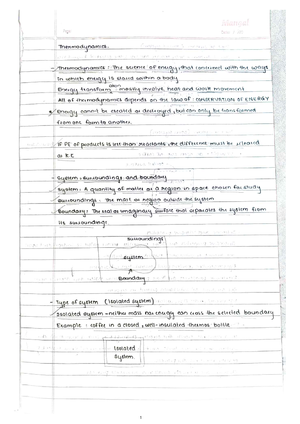 Thermodynamics.
- Thermodynamics : The science of energy, that concerned with the ways
in which energy is stored within a body
Energy transform - mostly involve heat and work movement
All of thermodynamics depends on the law of : CONSERVATION OF ENERGY
Energy cannot be created or destroyed, but can only be transformed
from one form to another.
If PE of products is less than reactants, the different must be released
as K.E
- System, surroundings and boundary
- System : A quantity of matter or a region in space chosen for study
- Surroundings : The mass or region outside the system
- Boundary : The real or imaginary surface that separates the system from
its surroundings.
surroundings
system
Boundary
- Type of system (Isolated system)
Isolated system - neither mass nor energy can cross the selected boundary
Example : coffee in a closed, well-insulated thermos bottle
Isolated
System